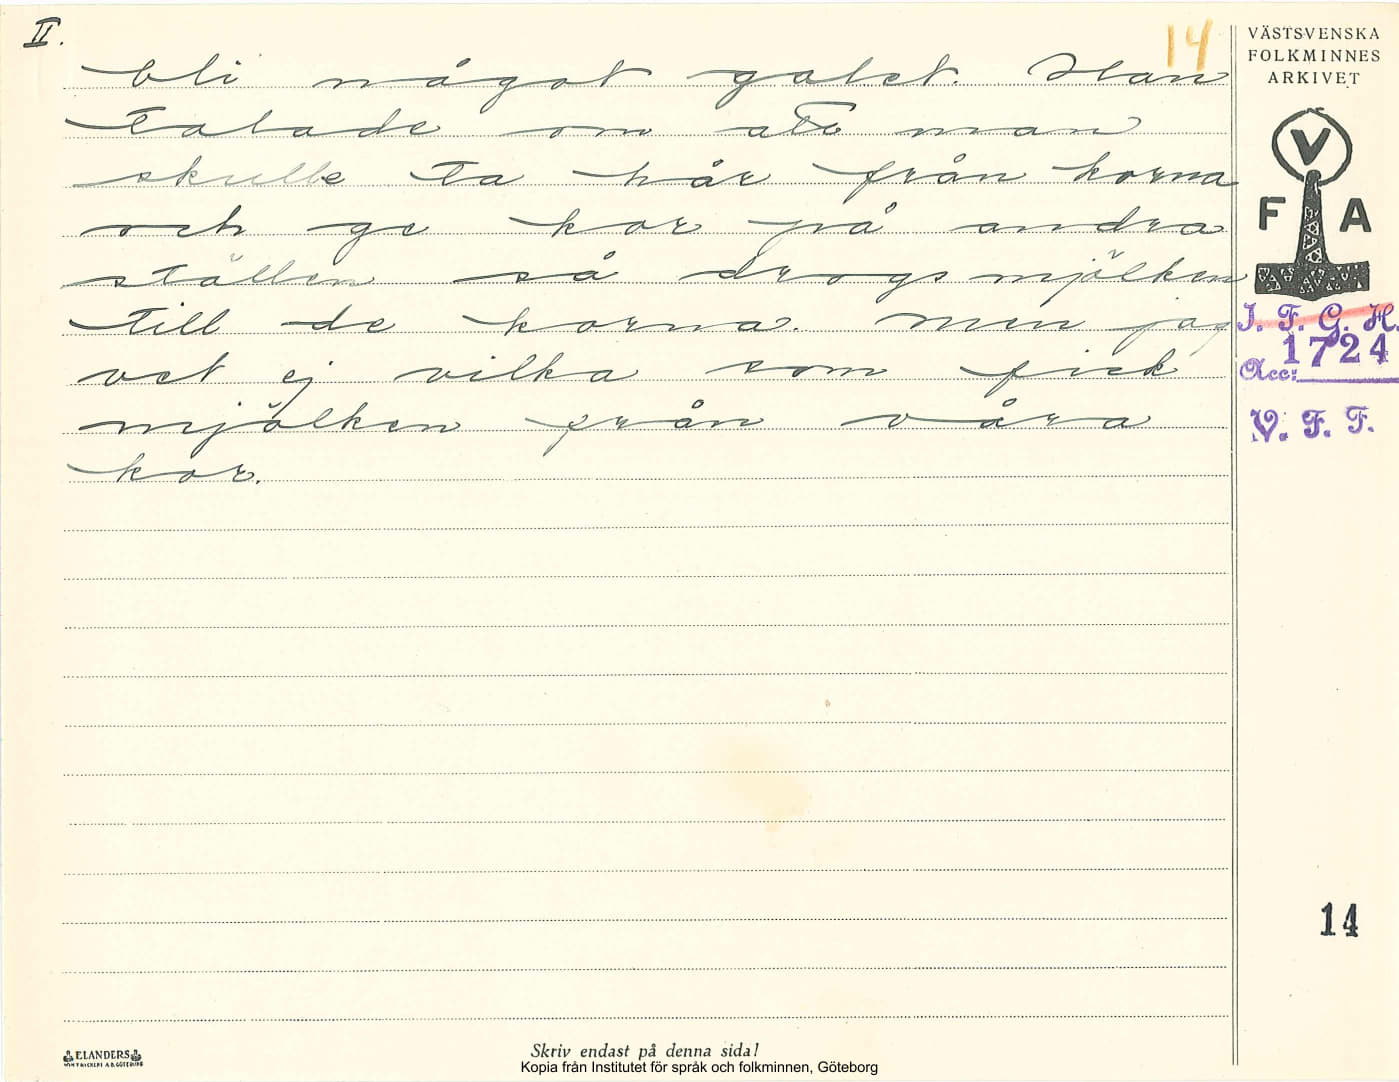 II.
14
bli något galet. Han
talade om att man
skulle ta hår från korna
och ge kor på andra
ställen så drogs mjölken
till de korna. Men jag
vet ej vilka som fick
mjölken från våra
kor.
VÄSTSVENSKA
FOLKMINNES
ARKIVET
V
F A
I. F. G. H.
1724
Acc:
V. F. F.
14
Skriv endast på denna sida!
ELANDERS
Kopia från Institutet för språk och folkminnen, Göteborg